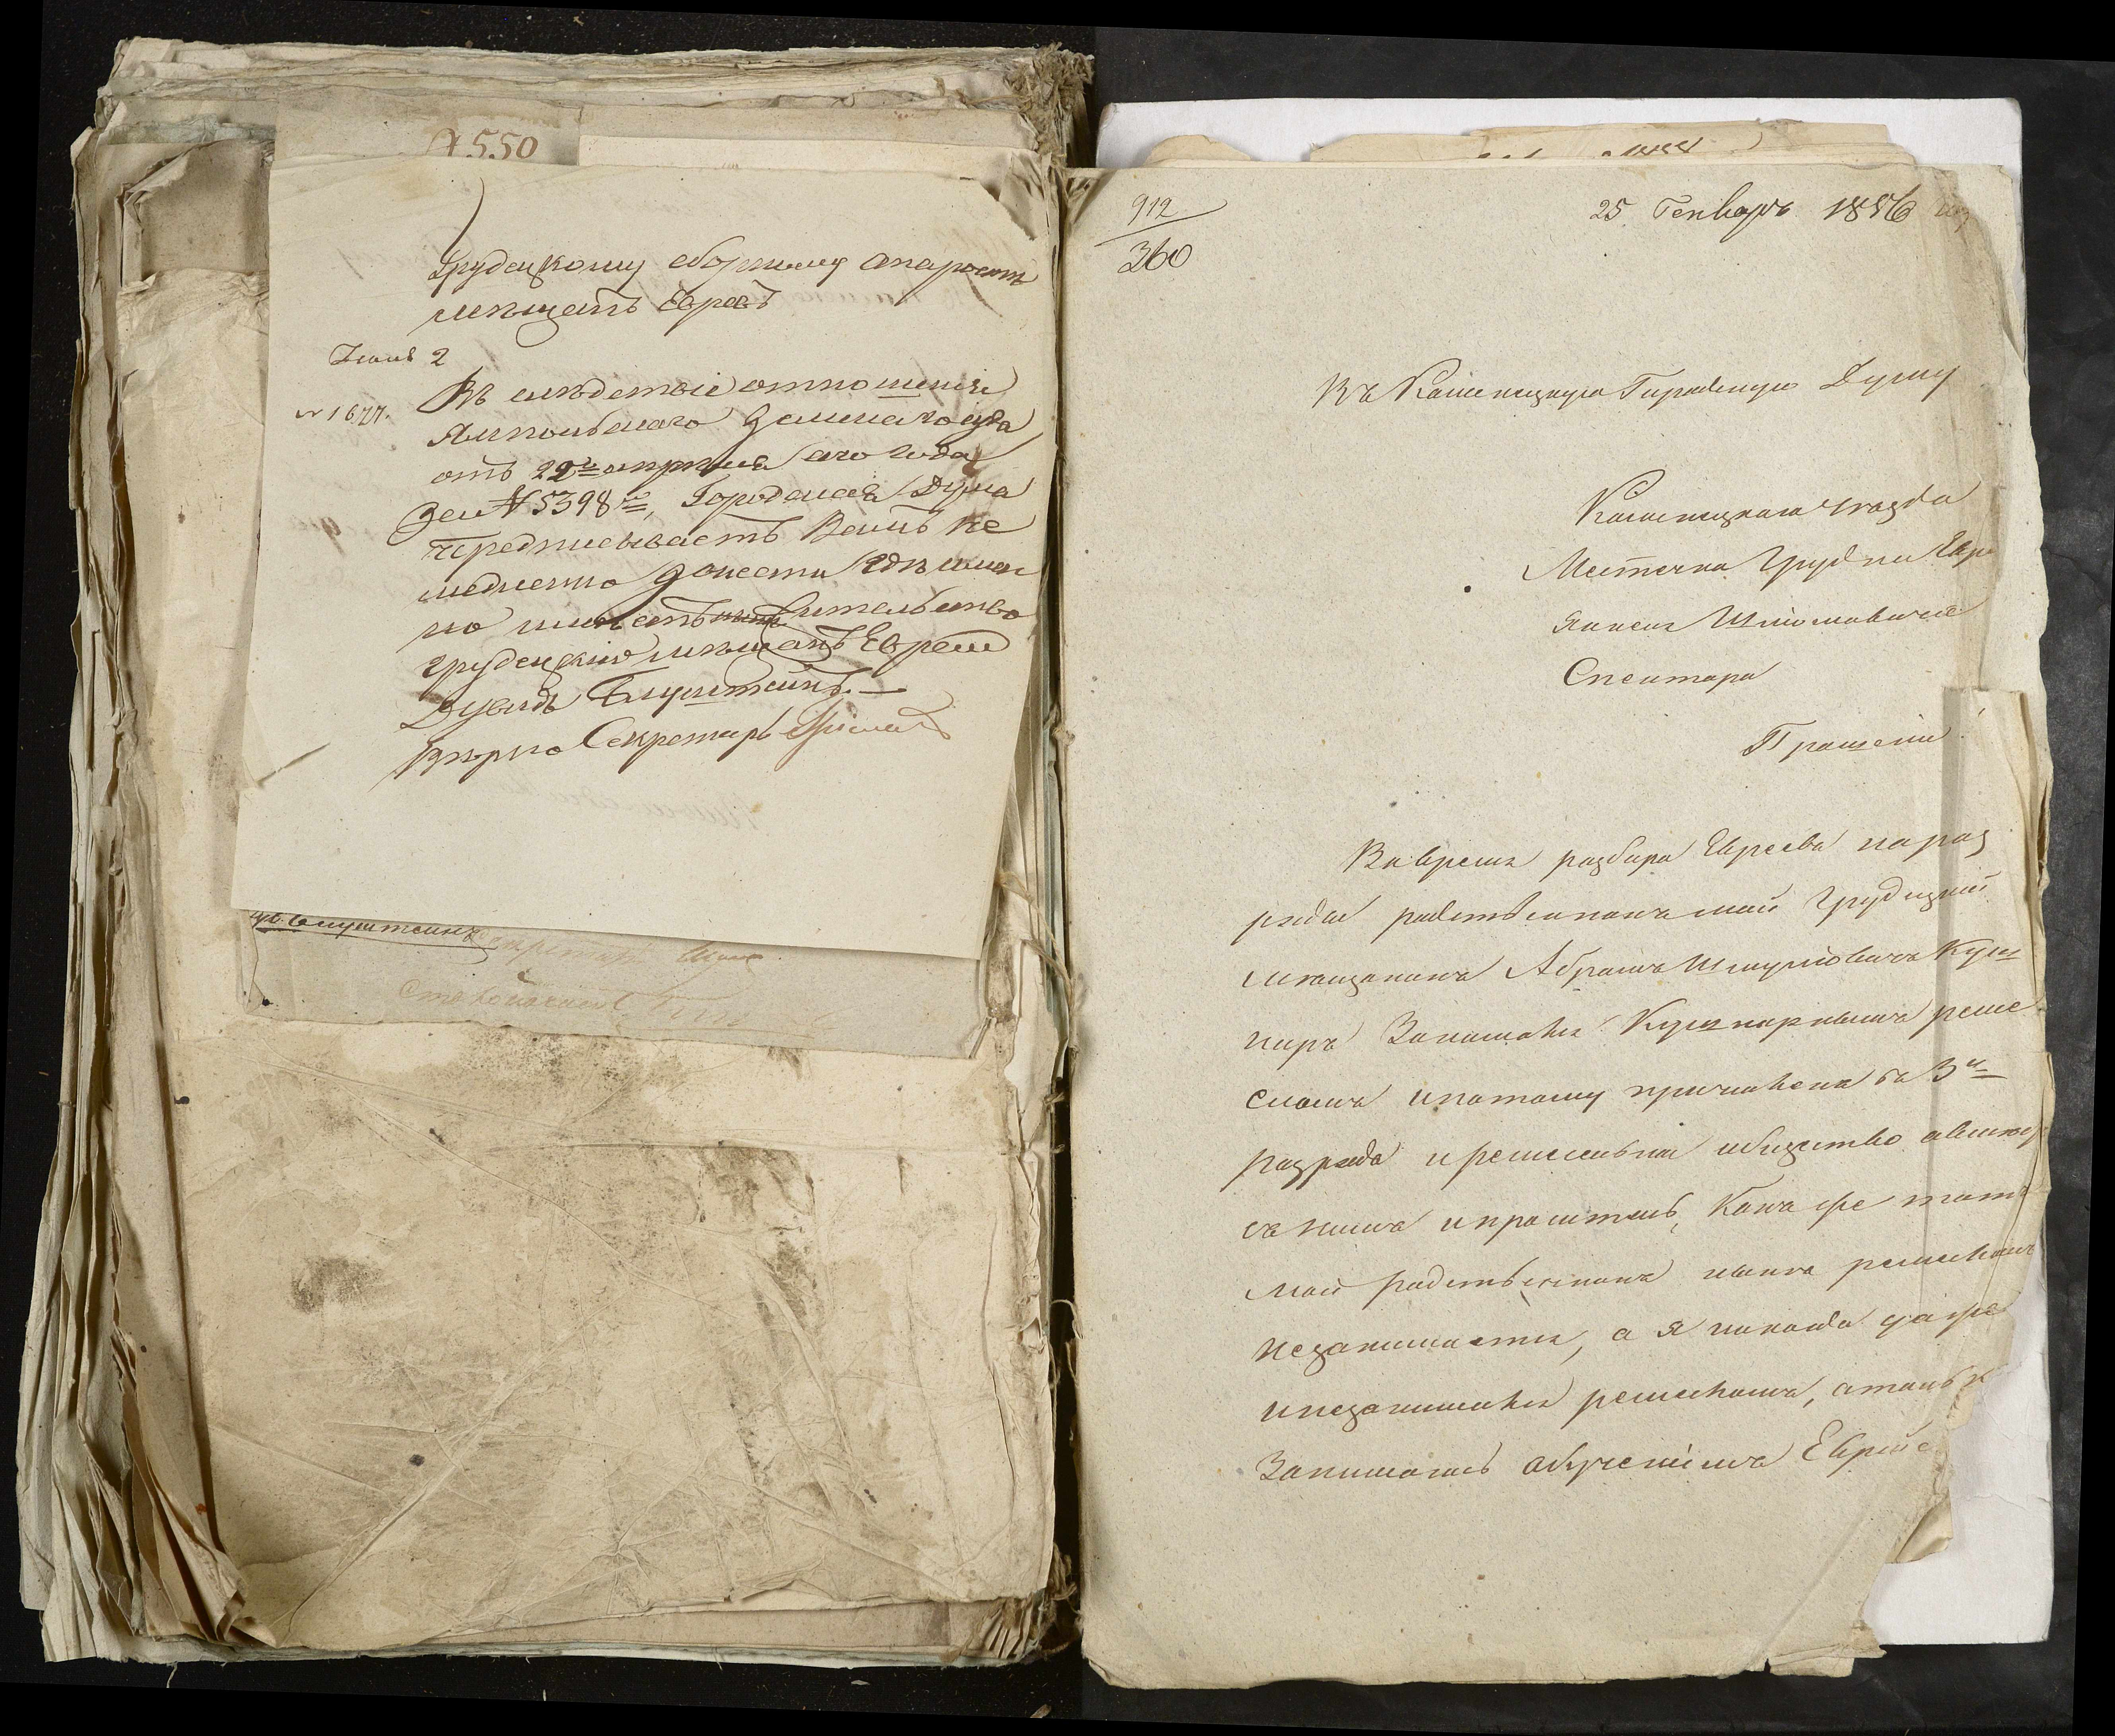 7550
Грудецкому сборщику старостѣ
мѣщанъ Евреевъ
Іюня 2
№ 1677.
Въ слѣдствіе отношенія
Ямпольскаго Земскаго суда
отъ 22го апрѣля сего года
за № 5398мъ, Городская Дума
предписываетъ Вамъ не
медленно донести гдѣ имен
но имѣетъ жительство
грудецкій мѣщанъ Еврей
Дувидъ Блуштейнъ. —
Вѣрно Секретарь
Блуштейнъ
912
360
25 Генваря 1856
Въ Каменецкую Городскую Думу
Каменецкаго Уѣзда
Местечка Грудка Евре
Янкеля Шліомовича
Спектора
Прошеніе
Вовремя разбора Евреевъ нараз
ряды родственникъ мой Грудецкій
мѣщанинъ Абрамъ Шмуліовичъ Куш
ниръ Записался Кушнарнымъ реме
сломъ ипотому причисленъ въ 3й
разрядъ
съ нимъ
Какъ же тотъ
мой родственникъ никакъ ремесломъ
незанимается, а я никогда даже
инезанимался ремесломъ, атолько
Занимаюсь обученіемъ Еврейс